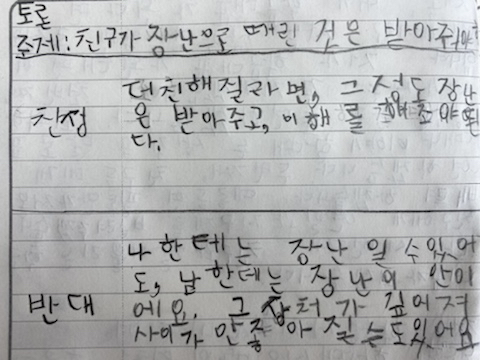 토론
주제: 친구가 장난으로 때린 것은 받아줘야
더 친해질라면, 그 정도 장난
찬정 은 받아주고, 이해를 해줘야 된
다.
나한테는 장난일 수 있어
도, 남한테는 장난이 안이
반대 에요. 그 상터가 깊어져
사이가 안좋아 질 수도있어요